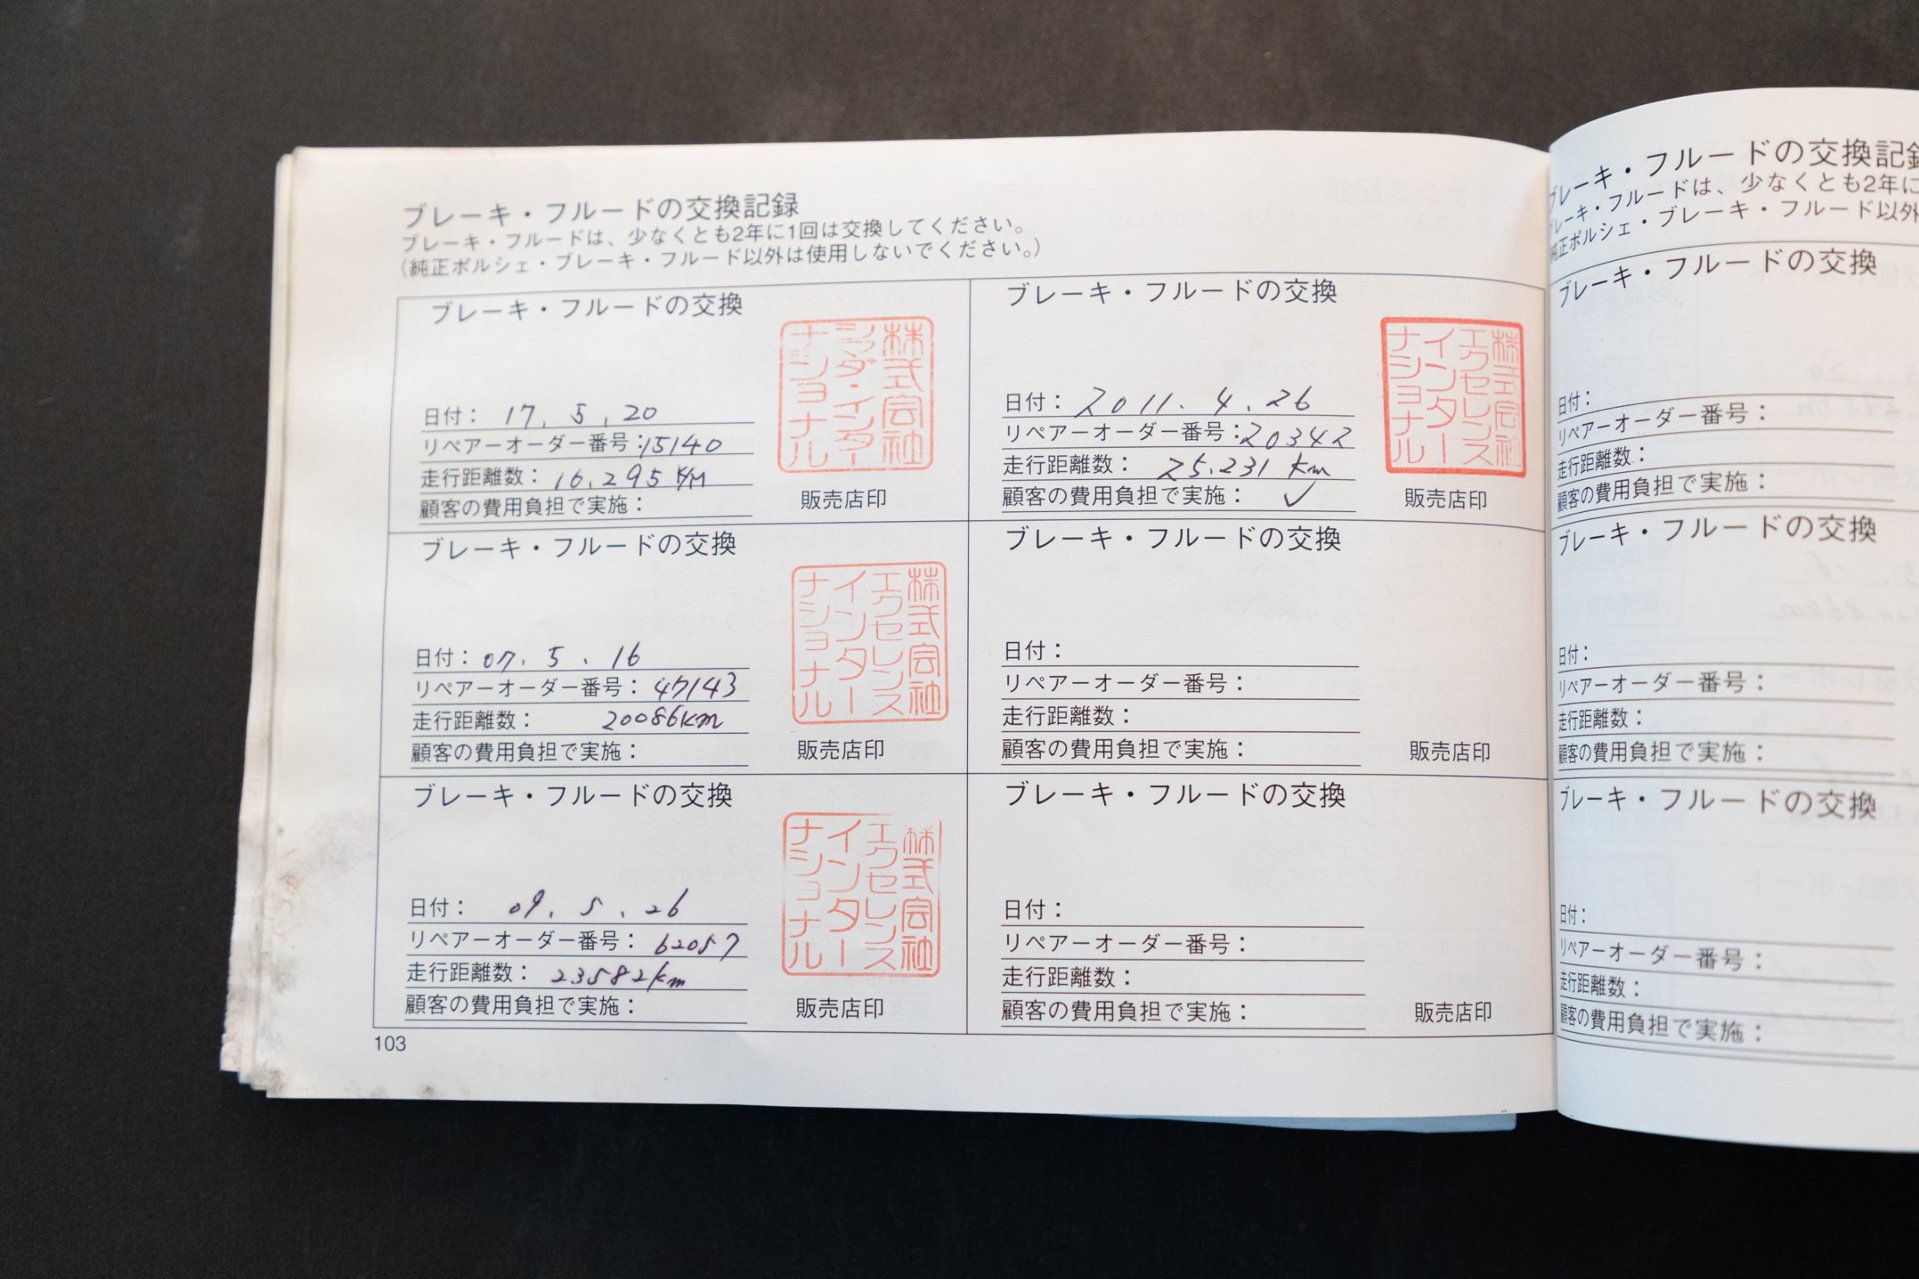 ブレーキ・フルードの交換記録
ブレーキ・フルードは、少なくとも2年に1回は交換してください。
（純正ポルシェ・ブレーキ・フルード以外は使用しないでください。）
ブレーキ・フルードの交換
日付： 17. 5. 20
リペアーオーダー番号：15140
走行距離数： 16,295 KM
顧客の費用負担で実施：
販売店印
株式会社
シワダ・インター
ナショナル
ブレーキ・フルードの交換
日付： 07. 5. 16
リペアーオーダー番号： 47143
走行距離数： 20086km
顧客の費用負担で実施：
販売店印
株式会社
エクセレンス
インター
ナショナル
ブレーキ・フルードの交換
日付： 09. 5. 26
リペアーオーダー番号： 62057
走行距離数： 23582km
顧客の費用負担で実施：
販売店印
株式会社
エクセレンス
インター
ナショナル
103
ブレーキ・フルードの交換
日付： 2011. 4. 26
リペアーオーダー番号：20342
走行距離数： 25.231 km
顧客の費用負担で実施： ✓
販売店印
株式会社
エクセレンス
インター
ナショナル
ブレーキ・フルードの交換
日付：
リペアーオーダー番号：
走行距離数：
顧客の費用負担で実施：
販売店印
ブレーキ・フルードの交換
日付：
リペアーオーダー番号：
走行距離数：
顧客の費用負担で実施：
販売店印
ブレーキ・フルードの交換記録
ブレーキ・フルードは、少なくとも2年に
純正ポルシェ・ブレーキ・フルード以外
ブレーキ・フルードの交換
日付：
リペアーオーダー番号：
走行距離数：
顧客の費用負担で実施：
ブレーキ・フルードの交換
日付：
リペアーオーダー番号：
走行距離数：
顧客の費用負担で実施：
ブレーキ・フルードの交換
日付：
リペアーオーダー番号：
走行距離数：
顧客の費用負担で実施：